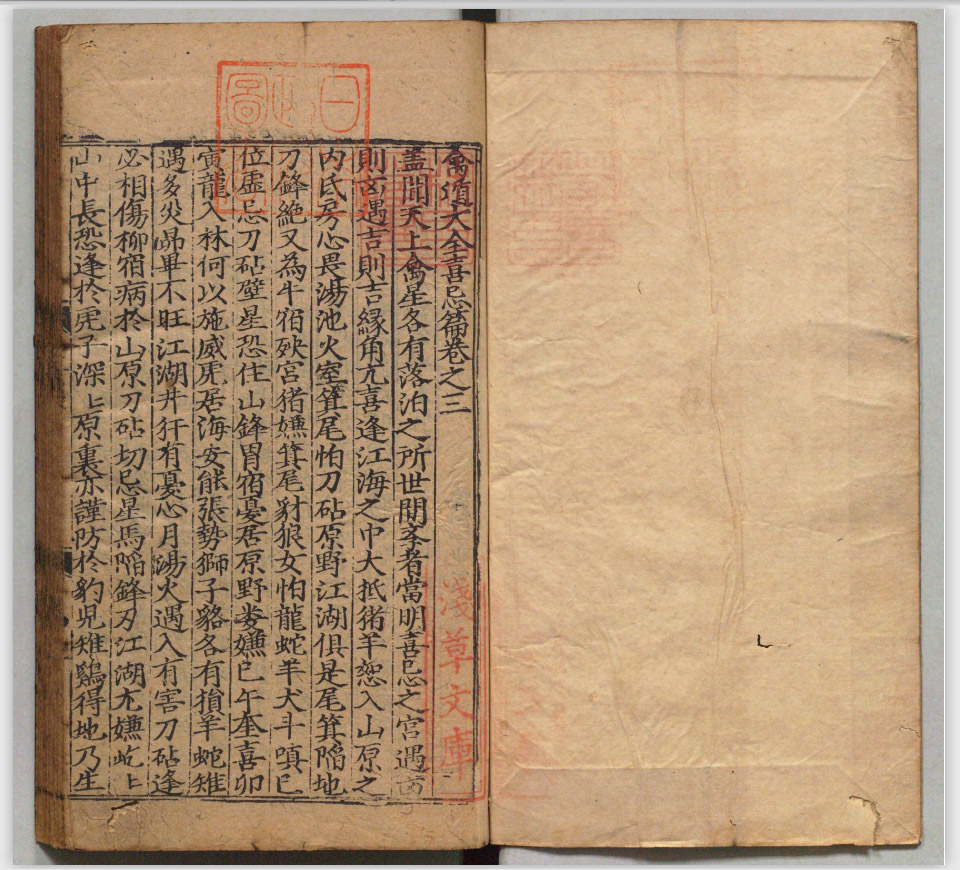 禽遁大全喜忌篇卷之三
盖聞天上禽星各有落泊之所世間李者當明喜忌之宮遇凶
則凶遇吉則吉緣角亢喜逢江海之中大抵術羊怒入山原之
内氐房心畏湯池火室箕尾怕刀砧原野江湖俱是尾箕陷地
刀鋒絶又為牛宿殃宮猪嫌箕尾豺狼女怕龍蛇羊犬斗嗔巳
位虚忌刀砧壁星恐住山鋒胃宿憂居原野婁嫌巳午奎喜卯
寅龍入林何以施威虎居海安能張勢獅子貉各有損羊蛇雉
遇多災昴畢不旺江湖井犴有憂心月湯火遇入有害刀砧逢
必相傷柳宿病於山原刀砧切忌星馬陷鋒刃江湖尤嫌屹上
山中長恐逢於虎子深上原裏亦謹防於豹児雉鷄得地乃生
日
圖
淺草文庫